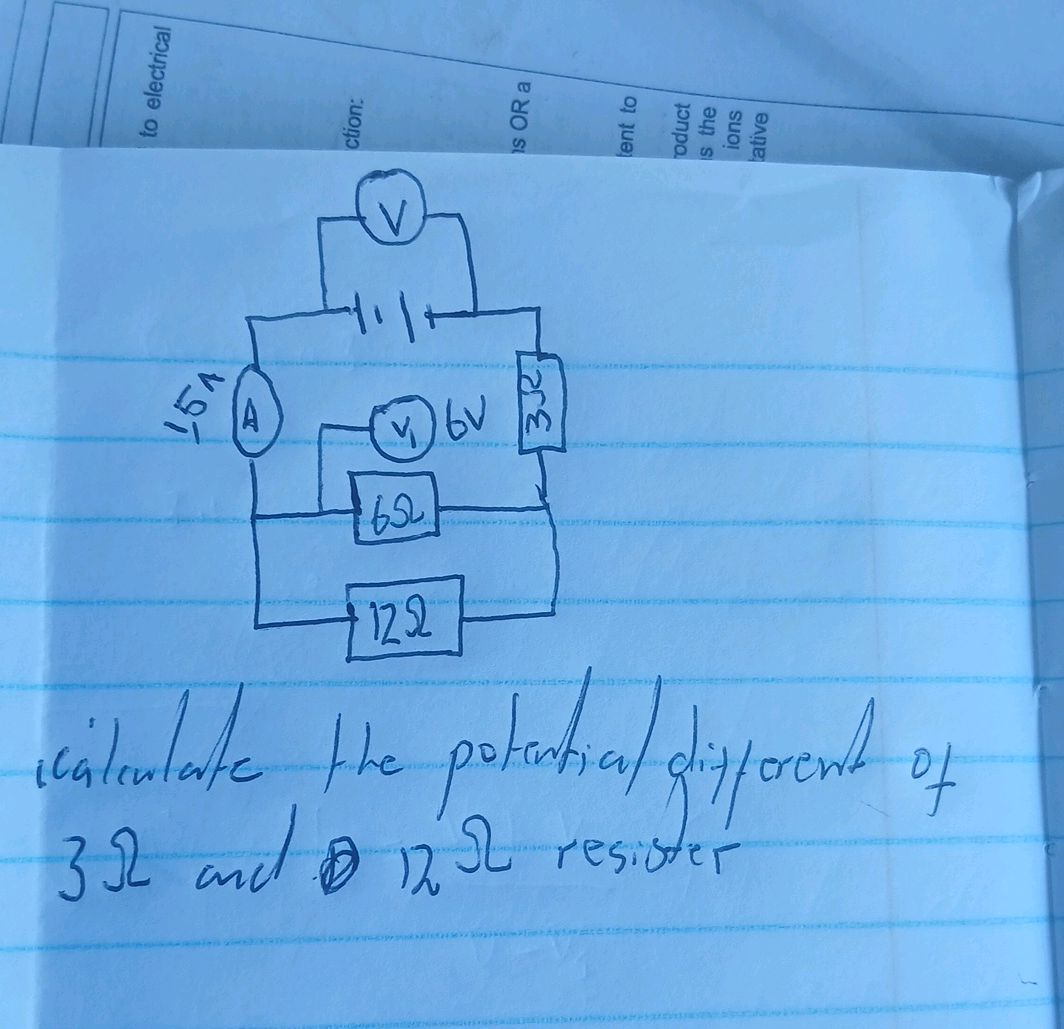 to electrical
ction:
ns OR a
tent to
roduct
s the
ions
tative
V
1.5A
A
V1
6V
3Ω
6Ω
12Ω
calculate the potential different of
3Ω and 12Ω resister